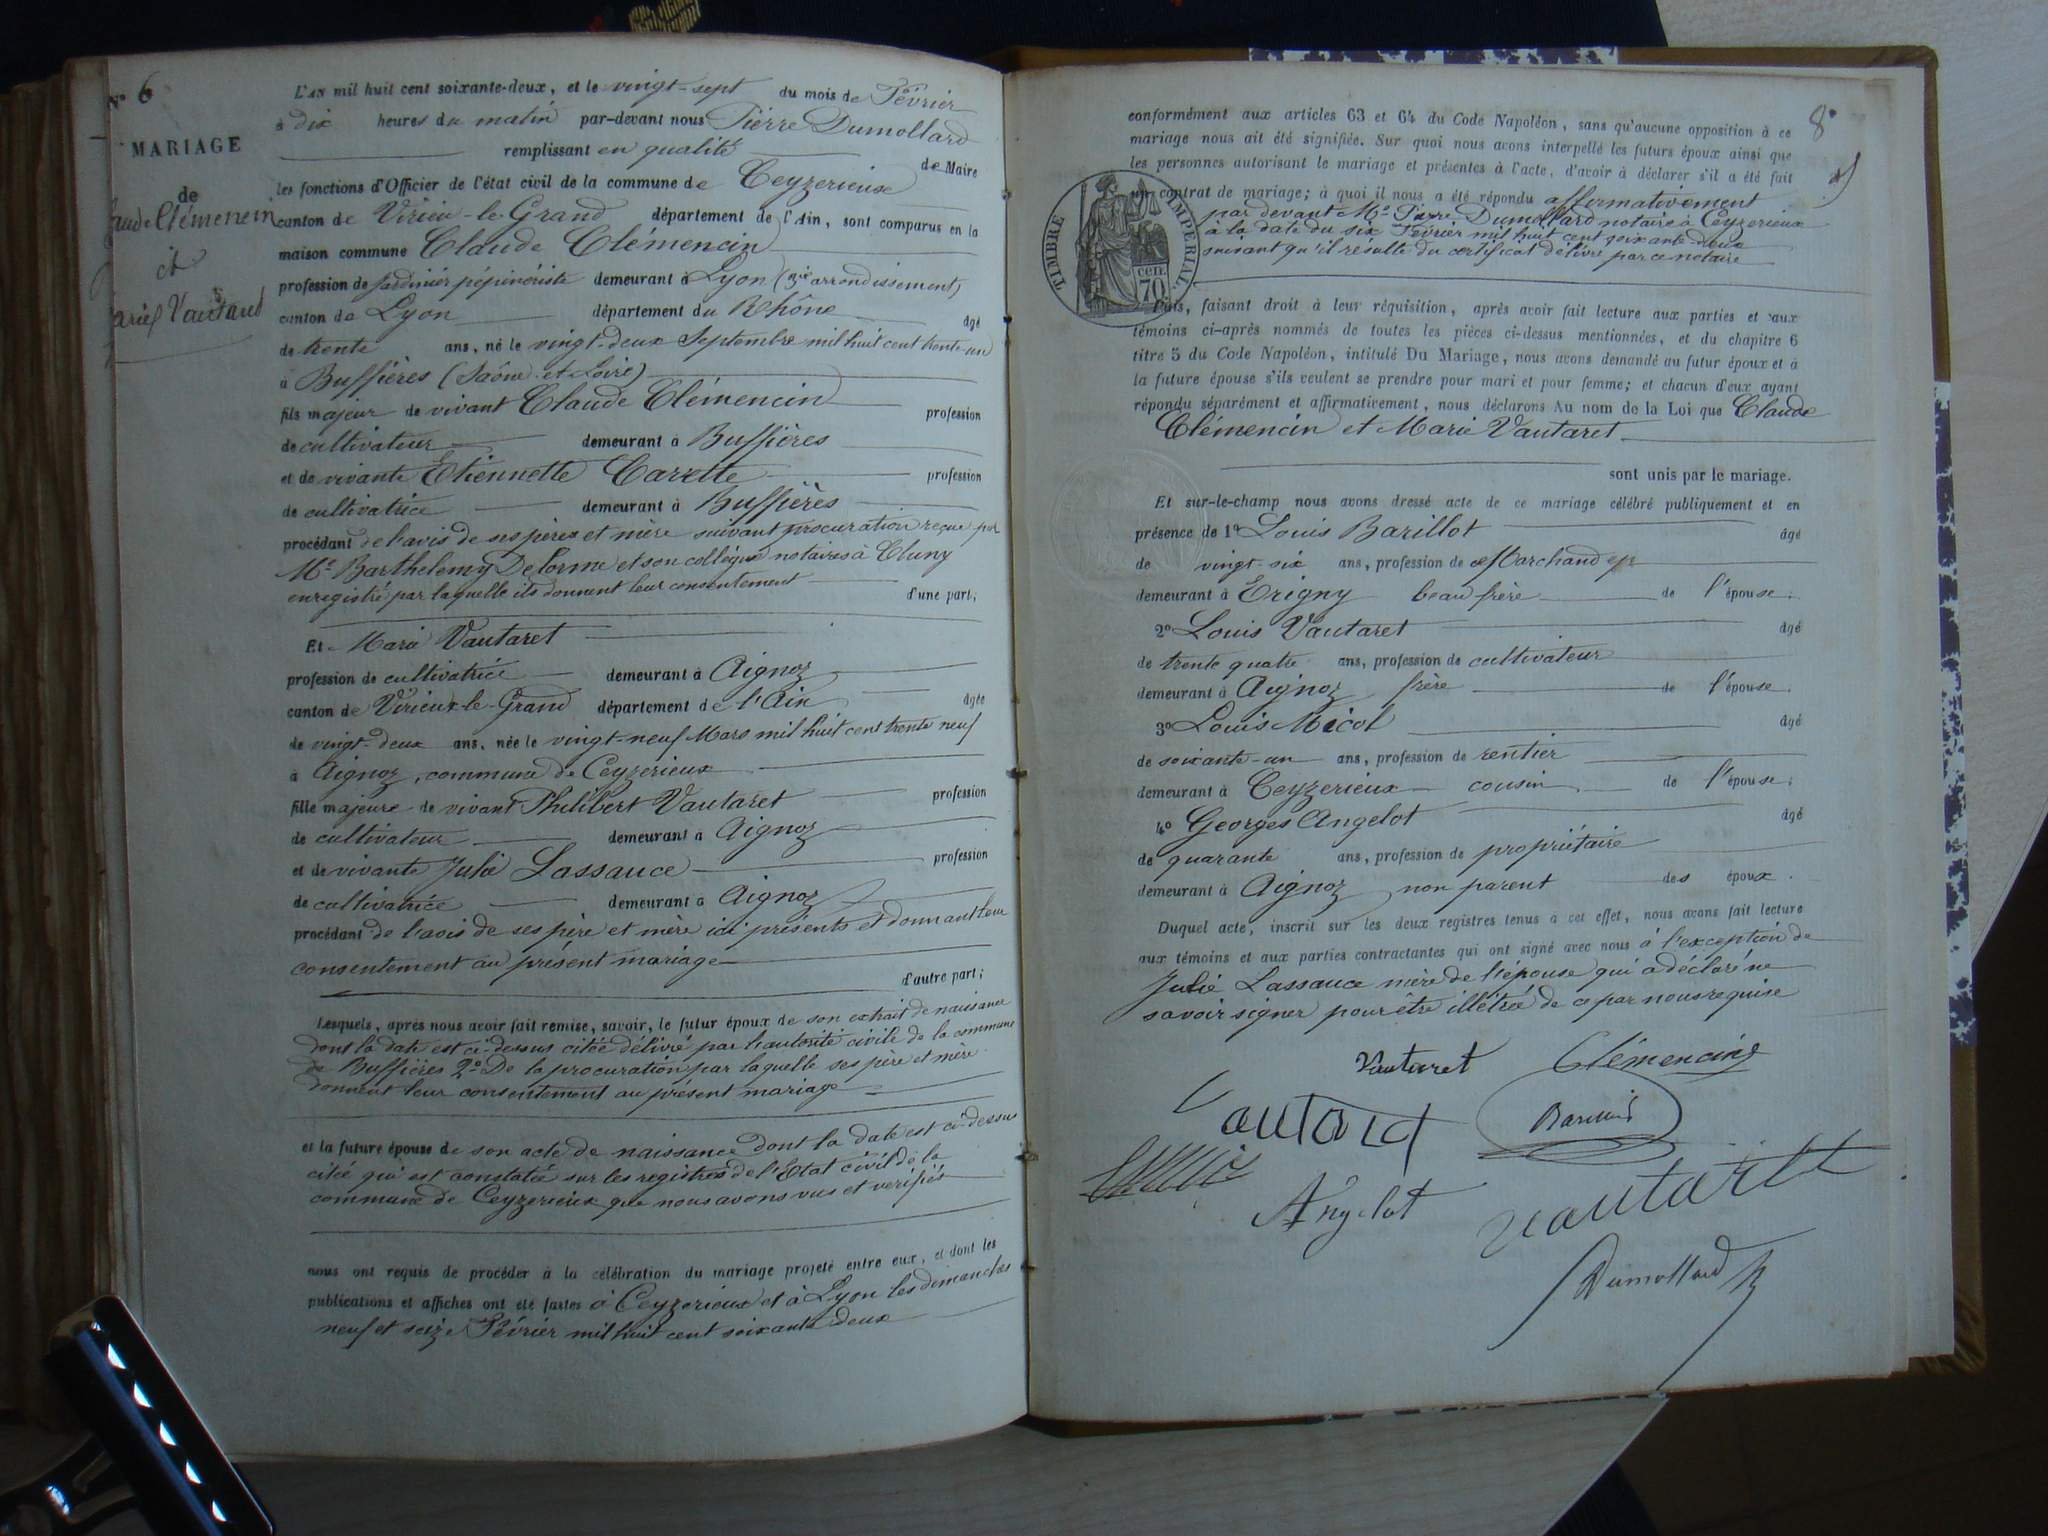 N° 6
MARIAGE
de
Claude Clémencin
et
Marie Vautaret
L'AN mil huit cent soixante-deux, et le vingt-sept du mois de Février
à dix heures du matin par-devant nous Pierre Dumollard
remplissant en qualité de Maire
les fonctions d'Officier de l'état civil de la commune de Ceyzerieux
canton de Virieu-le-Grand département de l'Ain, sont comparus en la
maison commune Claude Clémencin
profession de Jardinier pépinièriste demeurant à Lyon (3me arrondissement)
canton de Lyon département du Rhône âgé
de trente ans, né le vingt-deux Septembre mil huit cent trente-un
à Buffières (Saône et Loire)
fils majeur de vivant Claude Clémencin profession
de cultivateur demeurant à Buffières
et de vivante Etiennette Carette profession
de cultivatrice demeurant à Buffières
procédant de l'avis de ses pères et mère suivant procuration reçue par
Me Barthelemy Delorme et son collègue notaires à Cluny
enregistré par laquelle ils donnent leur consentement d'une part;
Et Marie Vautaret
profession de cultivatrice demeurant à Aignoz
canton de Virieux-le-Grand département de l'Ain âgée
de vingt-deux ans, née le vingt-neuf Mars mil huit cent trente neuf
à Aignoz, commune de Ceyzerieux
fille majeure de vivant Philibert Vautaret profession
de cultivateur demeurant à Aignoz
et de vivante Julie Lassauce profession
de cultivatrice demeurant à Aignoz
procédant de l'avis de ses père et mère ici présents et donnant leur
consentement au présent mariage
d'autre part;
Lesquels, après nous avoir fait remise, savoir, le futur époux de son extrait de naissance
dont la date est ci-dessus citée délivré par l'autorité civile de la commune
de Buffières 2° De la procuration par laquelle ses père et mère
donnent leur consentement au présent mariage
et la future épouse de son acte de naissance dont la date est ci-dessus
citée qui est constatée sur les registres de l'Etat civil de la
commune de Ceyzerieux que nous avons vus et vérifiés
nous ont requis de procéder à la célébration du mariage projeté entre eux, et dont les
publications et affiches ont été faites à Ceyzerieux et à Lyon les dimanches
neuf et seize Février mil huit cent soixante deux
8
conformément aux articles 63 et 64 du Code Napoléon, sans qu'aucune opposition à ce
mariage nous ait été signifiée. Sur quoi nous avons interpellé les futurs époux ainsi que
les personnes autorisant le mariage et présentes à l'acte, d'avoir à déclarer s'il a été fait
un contrat de mariage; à quoi il nous a été répondu affirmativement
par devant Me Pierre Dumollard notaire à Ceyzerieux
à la date du six Février mil huit cent soixante-deux
suivant qu'il résulte du certificat délivré par ce notaire
TIMBRE IMPERIAL
CEN. 70
Puis, faisant droit à leur réquisition, après avoir fait lecture aux parties et aux
témoins ci-après nommés de toutes les pièces ci-dessus mentionnées, et du chapitre 6
titre 5 du Code Napoléon, intitulé Du Mariage, nous avons demandé au futur époux et à
la future épouse s'ils veulent se prendre pour mari et pour femme; et chacun d'eux ayant
répondu séparément et affirmativement, nous déclarons Au nom de la Loi que Claude
Clémencin et Marie Vautaret
sont unis par le mariage.
Et sur-le-champ nous avons dressé acte de ce mariage célébré publiquement et en
présence de 1° Louis Barillot âgé
de vingt-six ans, profession de Marchand
demeurant à Erigny beau frère de l'épouse.
2° Louis Vautaret âgé
de trente quatre ans, profession de cultivateur
demeurant à Aignoz frère de l'épouse.
3° Louis Micol âgé
de soixante-un ans, profession de rentier
demeurant à Ceyzerieux cousin de l'épouse.
4° Georges Angelot âgé
de quarante ans, profession de propriétaire
demeurant à Aignoz non parent des époux.
Duquel acte, inscrit sur les deux registres tenus à cet effet, nous avons fait lecture
aux témoins et aux parties contractantes qui ont signé avec nous à l'exception de
Julie Lassauce mère de l'épouse qui a déclaré ne
savoir signer pour être illétrée de ce par nous requise
Vautaret Clémencin
Vautaret
Angelot Vautaret
Dumollard